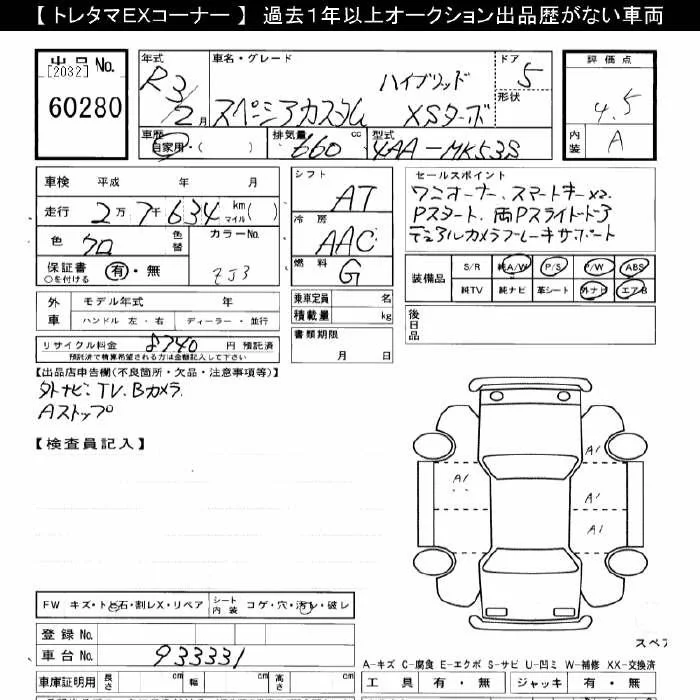 【 トレタマEXコーナー 】 過去1年以上オークション出品歴がない車両
出品No.
[2032]
60280
年式
R3/2月
車名・グレード
ハイブリッド
スペーシアカスタム XSターボ
ドア
5
形状
評価点
4.5
内装
A
車歴
自家用・( )
排気量 660 cc
型式 4AA-MK53S
車検 平成 年 月
走行 2万7千634 km マイル( )
色 クロ 色替
カラーNo.
ZJ3
保証書 有・無
○を付ける
シフト
AT
冷房
AAC
燃料
G
セールスポイント
ワンオーナー、スマートキーx2
Pスタート、両Pスライドドア
デュアルカメラブレーキサポート
装備品 S/R 純A/W P/S P/W ABS
純TV 純ナビ 革シート 外ナビ エアB
外車 モデル年式 年
ハンドル 左・右 ディーラー・並行
乗車定員 名
積載量 kg
書類期限
月 日
後日品
リサイクル料金 8740 円 預託済
預託済で精算希望される方は金額記入して下さい
【出品店申告欄(不良箇所・欠品・注意事項等)】
外ナビ、TV、Bカメラ
Aストップ
【検査員記入】
A1
A1
A1
A1
FW キズ・トビ石・割レX・リペア
シート内装 コゲ・穴・汚レ・破レ
登録No.
車台No. 933331
スペア
A-キズ C-腐食 E-エクボ S-サビ U-凹ミ W-補修 XX-交換済
車庫証明用 長さ cm 幅 cm 高さ cm
工具 有・無 ジャッキ 有・無